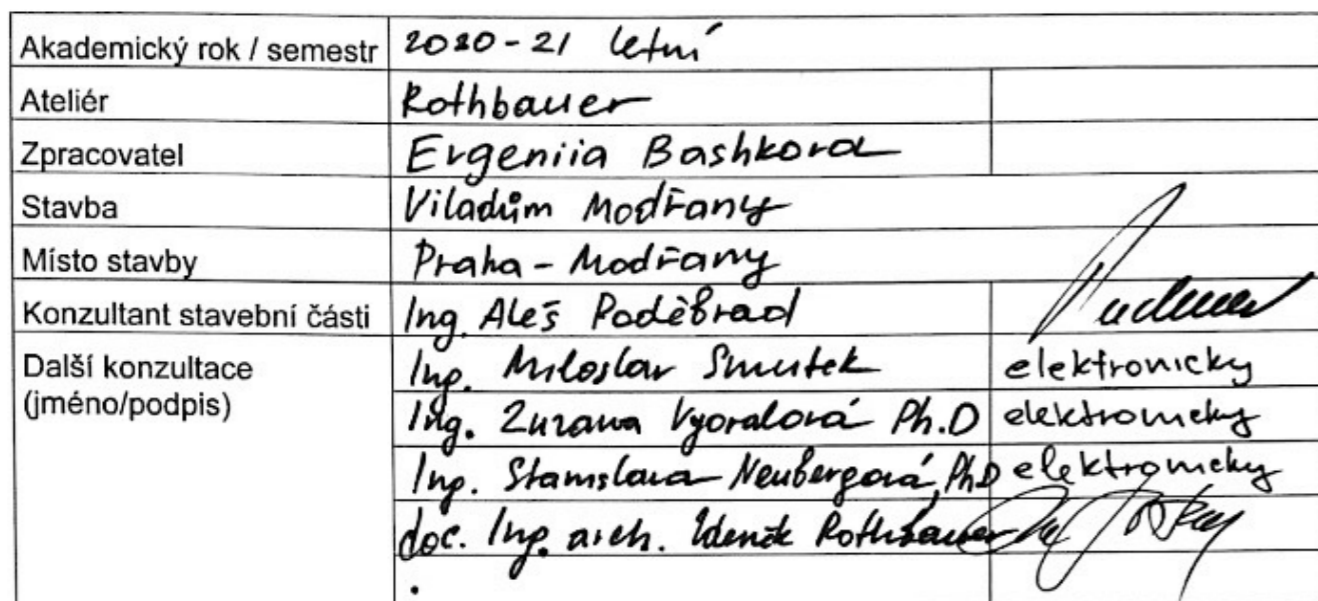 Akademický rok / semestr 2020-21 letní
Ateliér Rothbauer
Zpracovatel Evgeniia Bashkova
Stavba Viladům Modřany
Místo stavby Praha-Modřany
Konzultant stavební části Ing. Aleš Poděbrad
Další konzultace Ing. Miloslav Smutek elektronicky
(jméno/podpis) Ing. Zuzana Vyoralová Ph.D elektronicky
Ing. Stanislava Neubergová, PhD elektronicky
doc. Ing. arch. Zdeněk Rothbauer
.